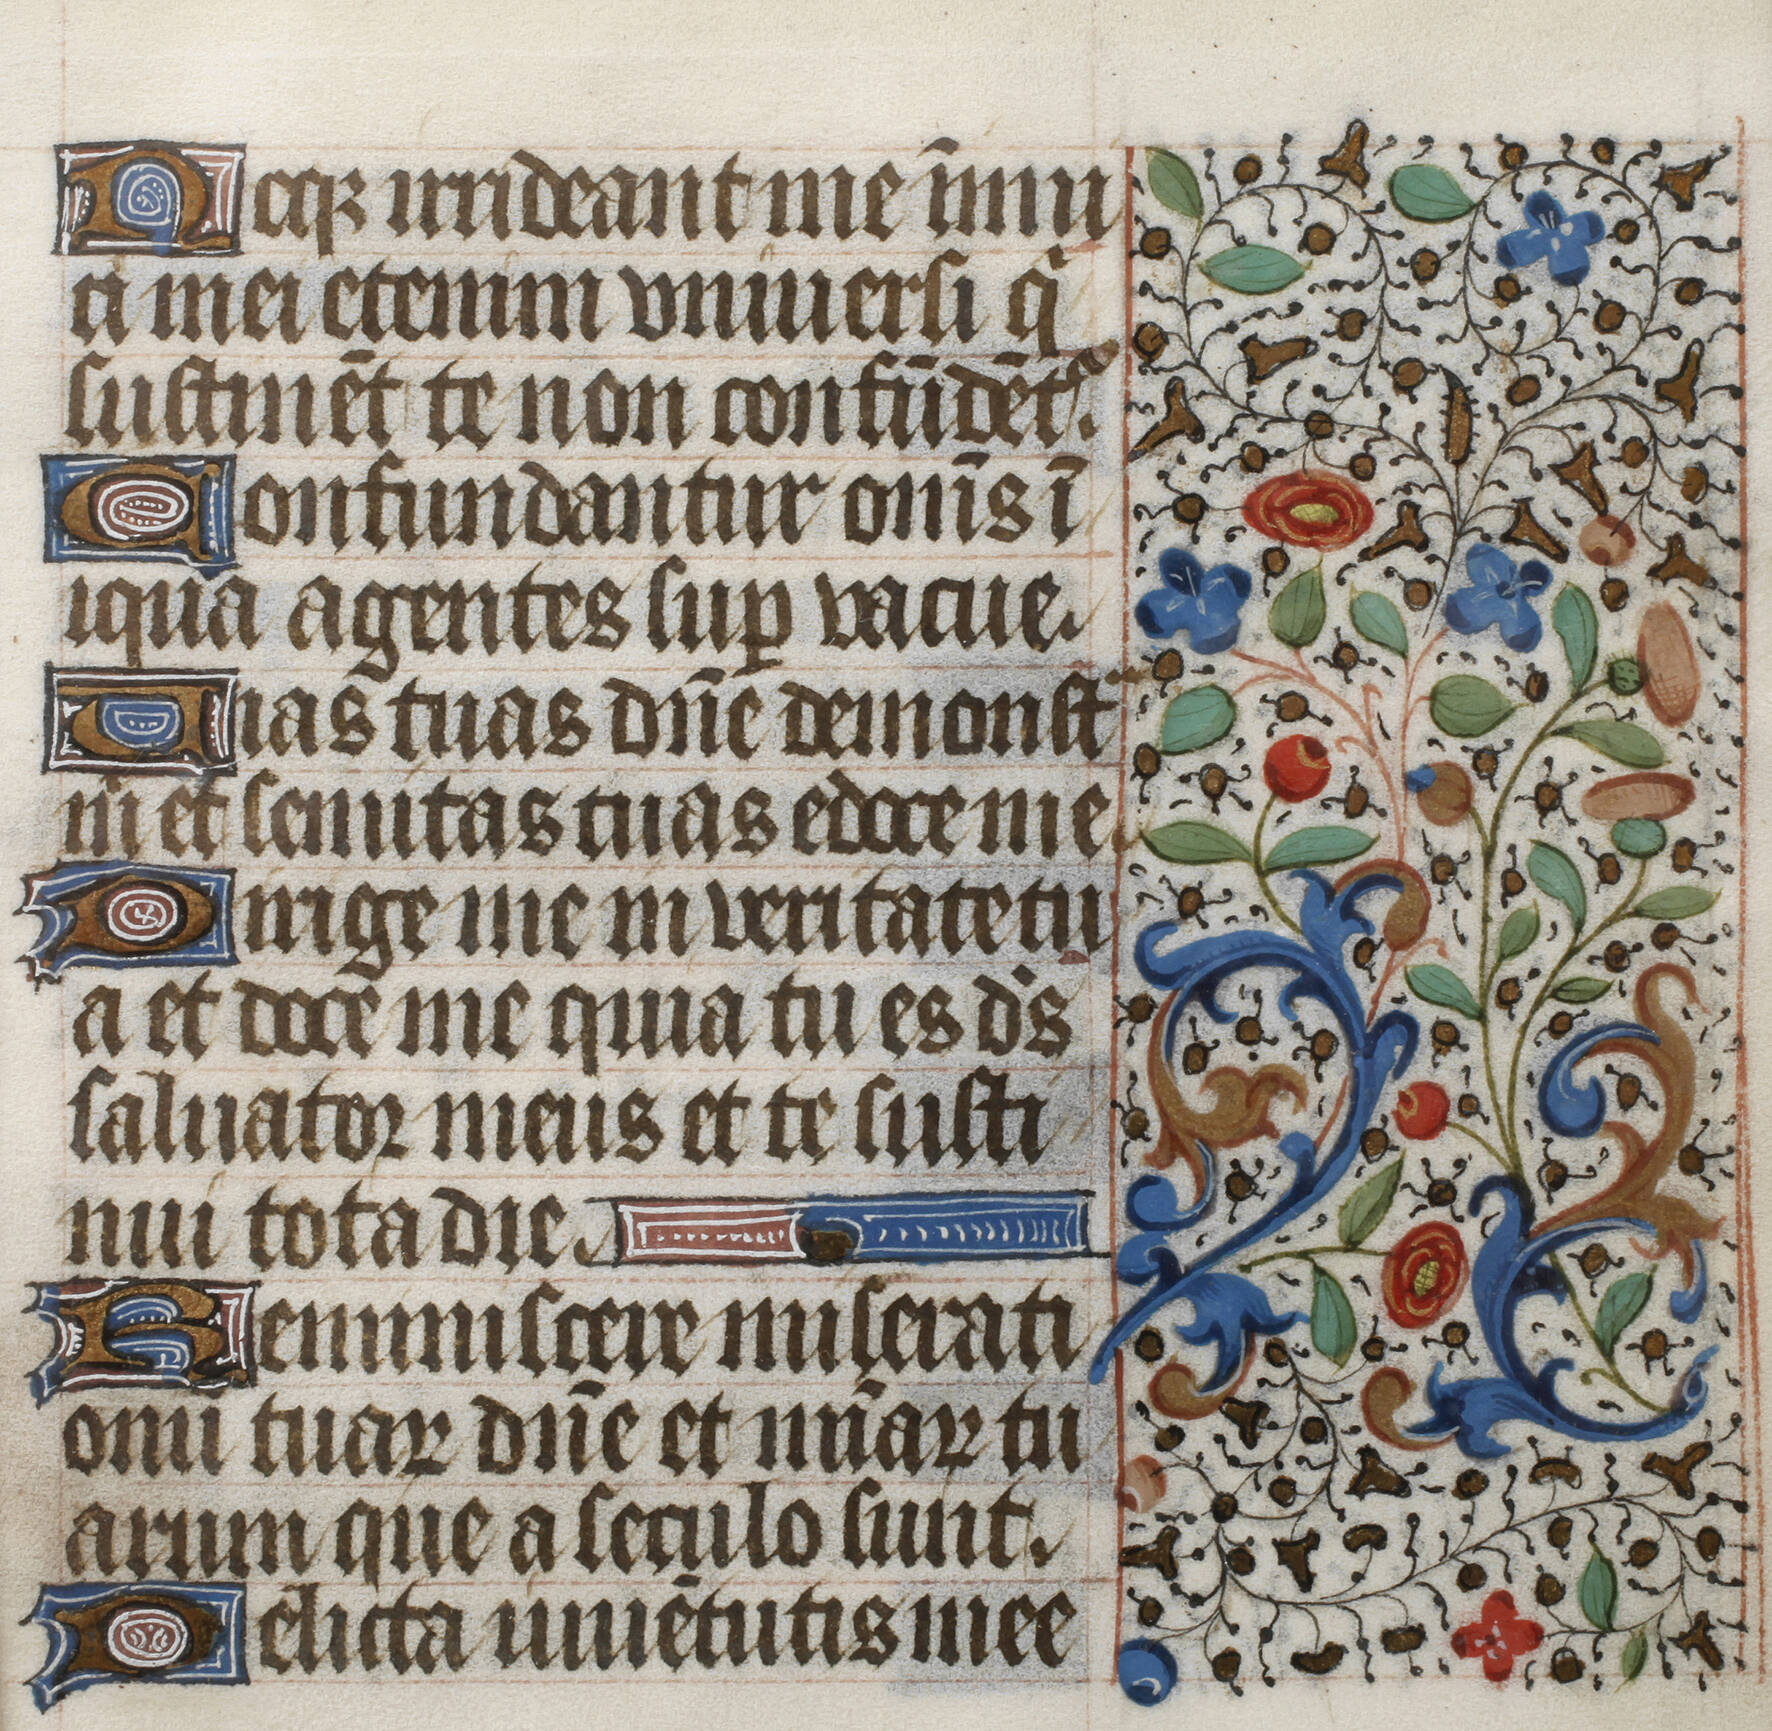 Neqꝫ irrideant me inimi
ci mei etenim vniuersi q̇
sustinēt te non confūdēt᷑.
Confundantur om̄s ī
iqua agentes suꝑ vacue.
Uias tuas dn̄e demonst᷑
m̄ et semitas tuas edoce me
Dirige me in veritate tu
a et doce me quia tu es ds̄
saluator meus et te susti
nui tota die.
Reminiscere miserati
onū tuaꝝ dn̄e et mīaꝝ tu
arum que a seculo sunt.
Delicta iuuētutis mee